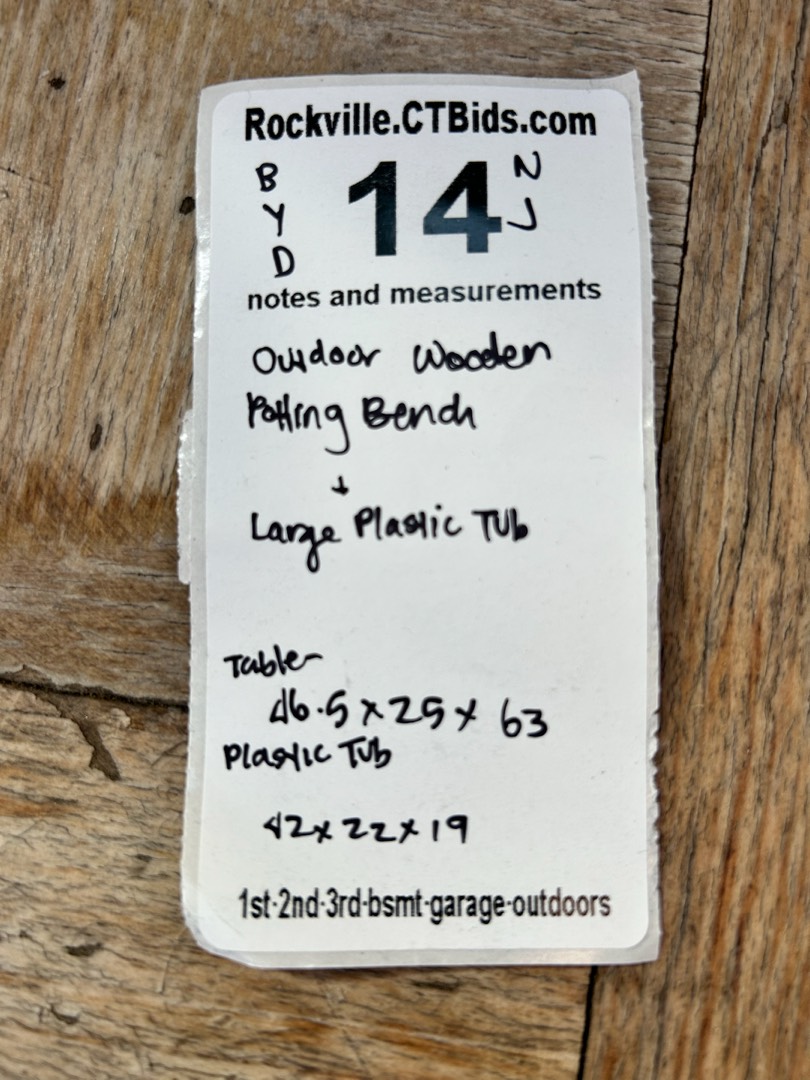 Rockville.CTBids.com
B Y D
14
N J
notes and measurements
Outdoor Wooden
Potting Bench
+
Large Plastic Tub
Table-
46.5 x 25 x 63
Plastic Tub
42 x 22 x 19
1st-2nd-3rd-bsmt-garage-outdoors